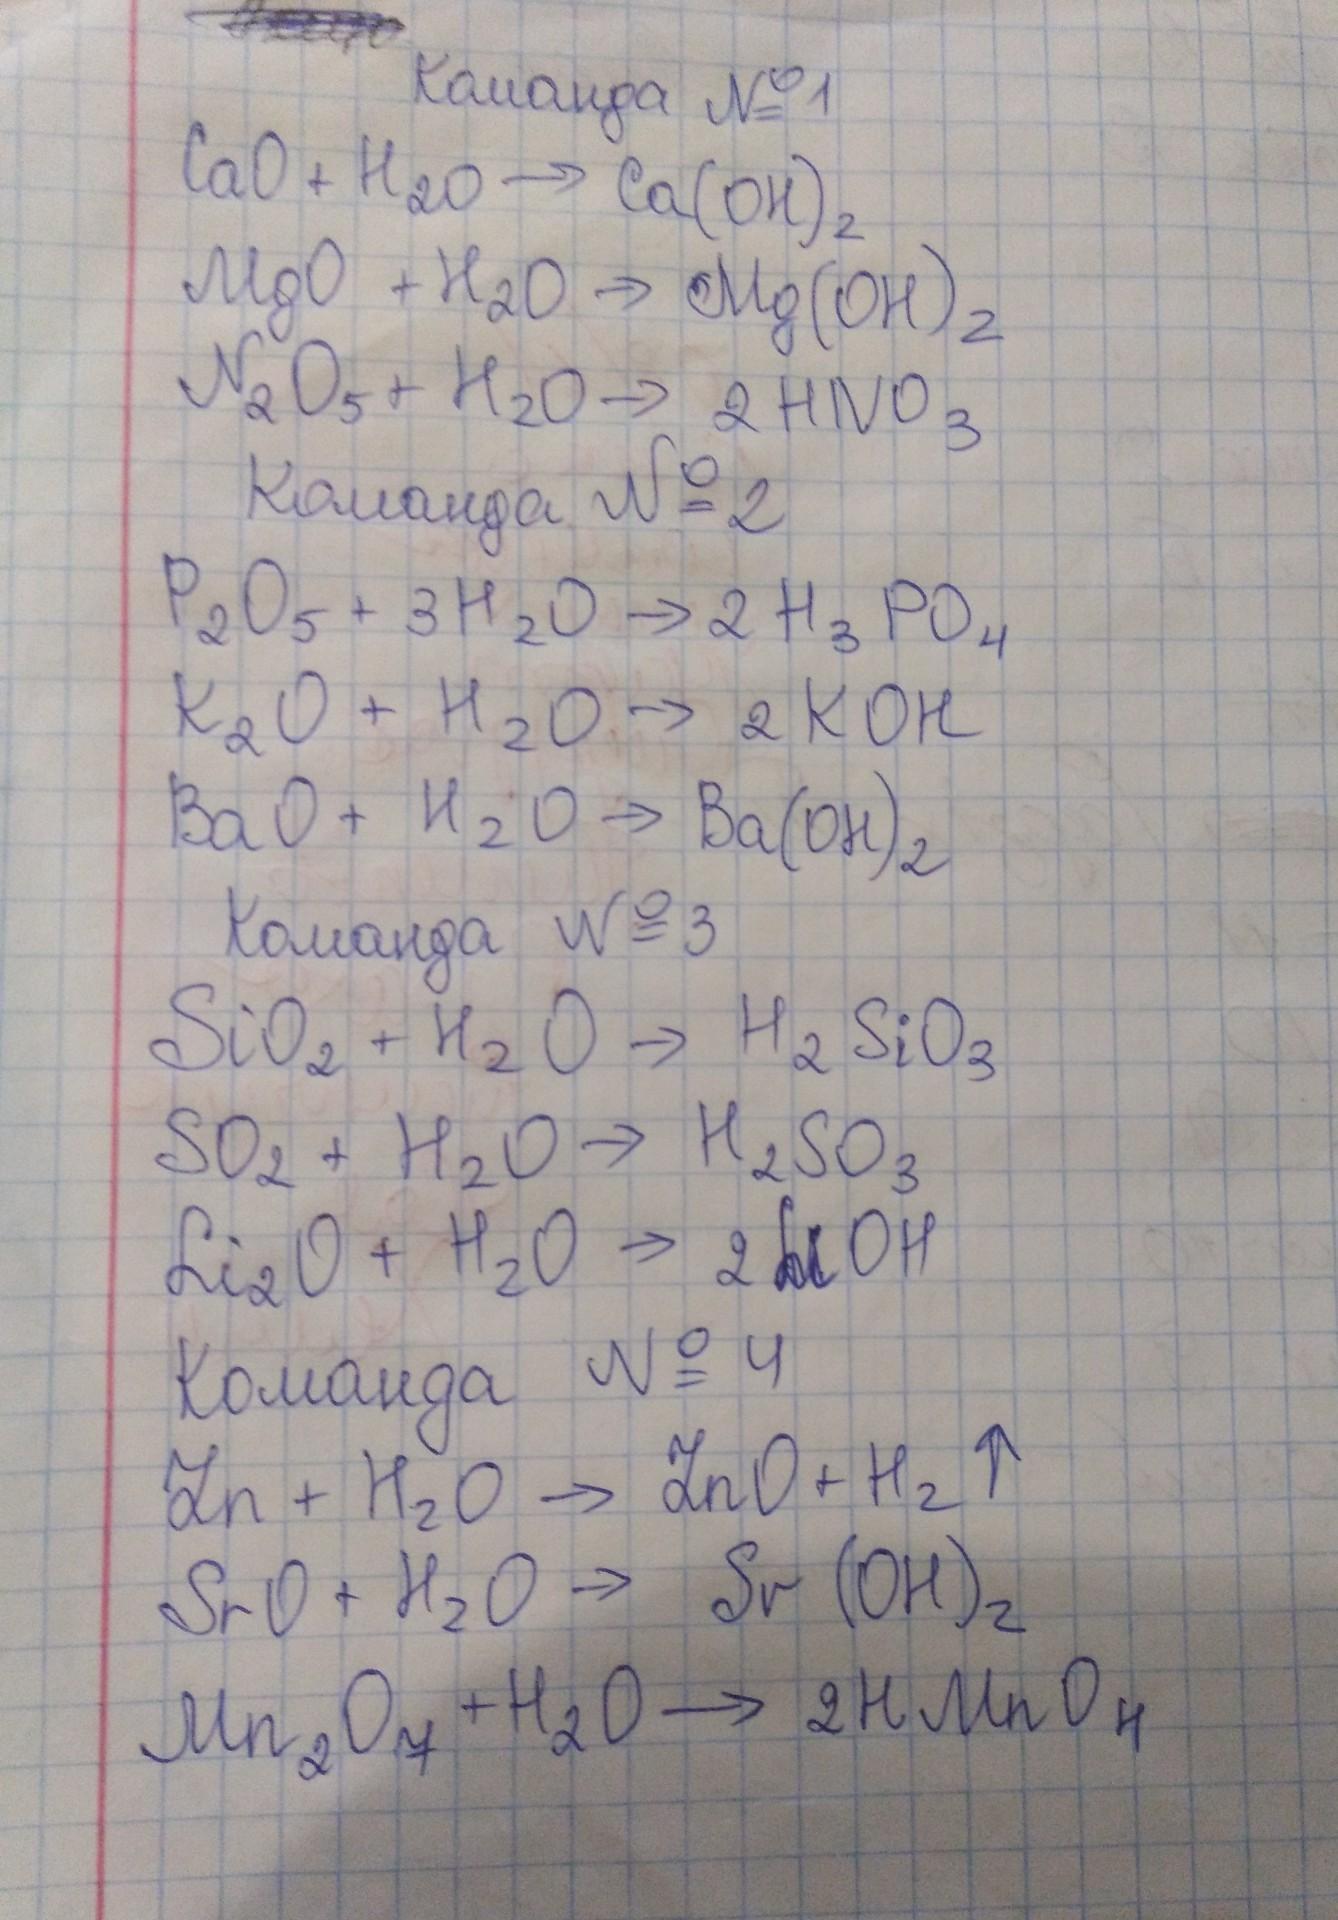 Команда №1
CaO + H₂O → Ca(OH)₂
MgO + H₂O → Mg(OH)₂
N₂O₅ + H₂O → 2HNO₃
Команда №2
P₂O₅ + 3H₂O → 2H₃PO₄
K₂O + H₂O → 2KOH
BaO + H₂O → Ba(OH)₂
Команда №3
SiO₂ + H₂O → H₂SiO₃
SO₂ + H₂O → H₂SO₃
Li₂O + H₂O → 2LiOH
Команда №4
Zn + H₂O → ZnO + H₂↑
SrO + H₂O → Sr(OH)₂
Mn₂O₇ + H₂O → 2HMnO₄